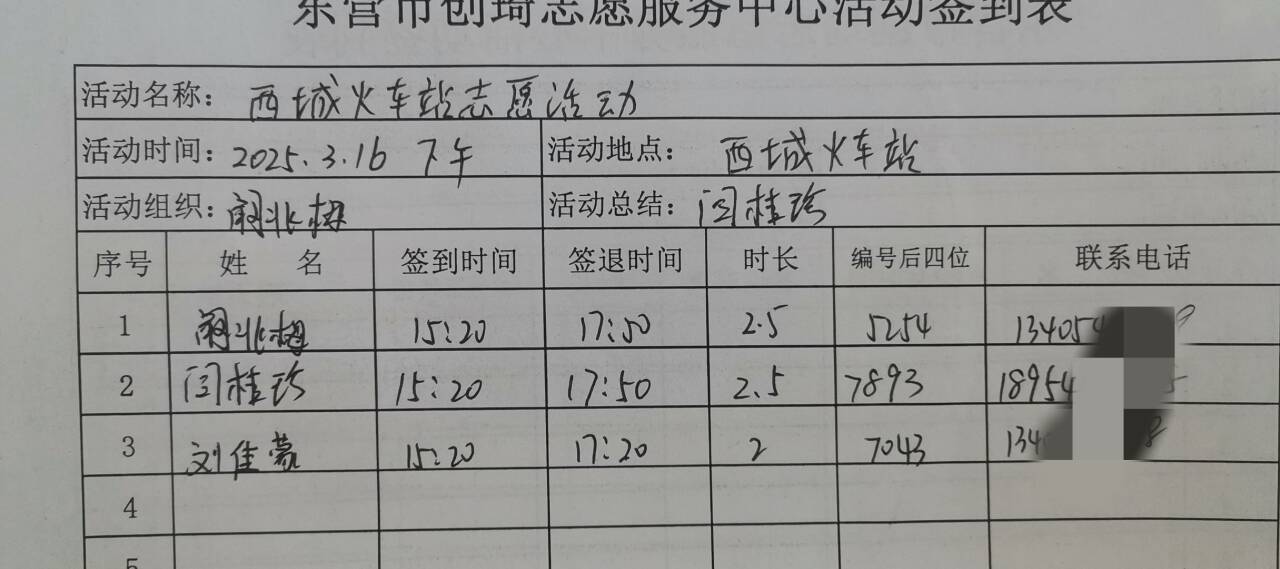 东营市创琦志愿服务中心活动签到表
活动名称： 西城火车站志愿活动
活动时间：2025.3.16 下午 活动地点： 西城火车站
活动组织： 活动总结：闫桂珍
序号 姓 名 签到时间 签退时间 时长 编号后四位 联系电话
1 15:20 17:50 2.5 5254 134054 9
2 闫桂珍 15:20 17:50 2.5 7893 18954 5
3 刘佳蒙 15:20 17:20 2 7043 134 8
4
5